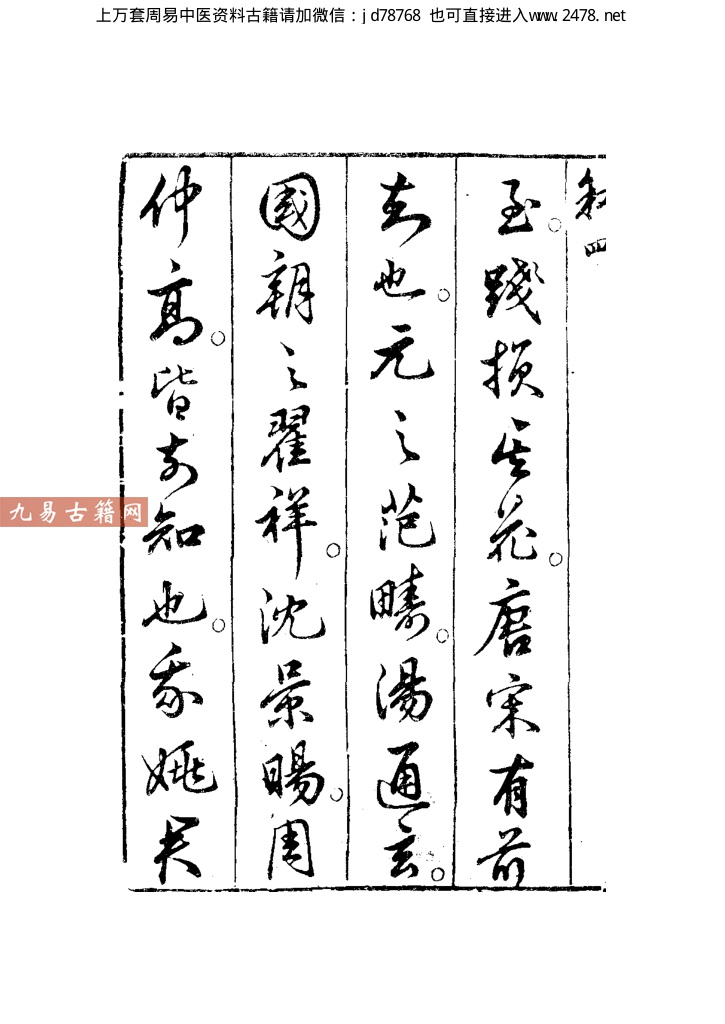 上万套周易中医资料古籍请加微信：jd78768 也可直接进入www.2478.net
叙四
至。踐損其花。唐宋有前
也。元之范疇。湯通玄。
國朝之翟祥。沈景暘。周
仲高。皆可知也。我姚
九易古籍网